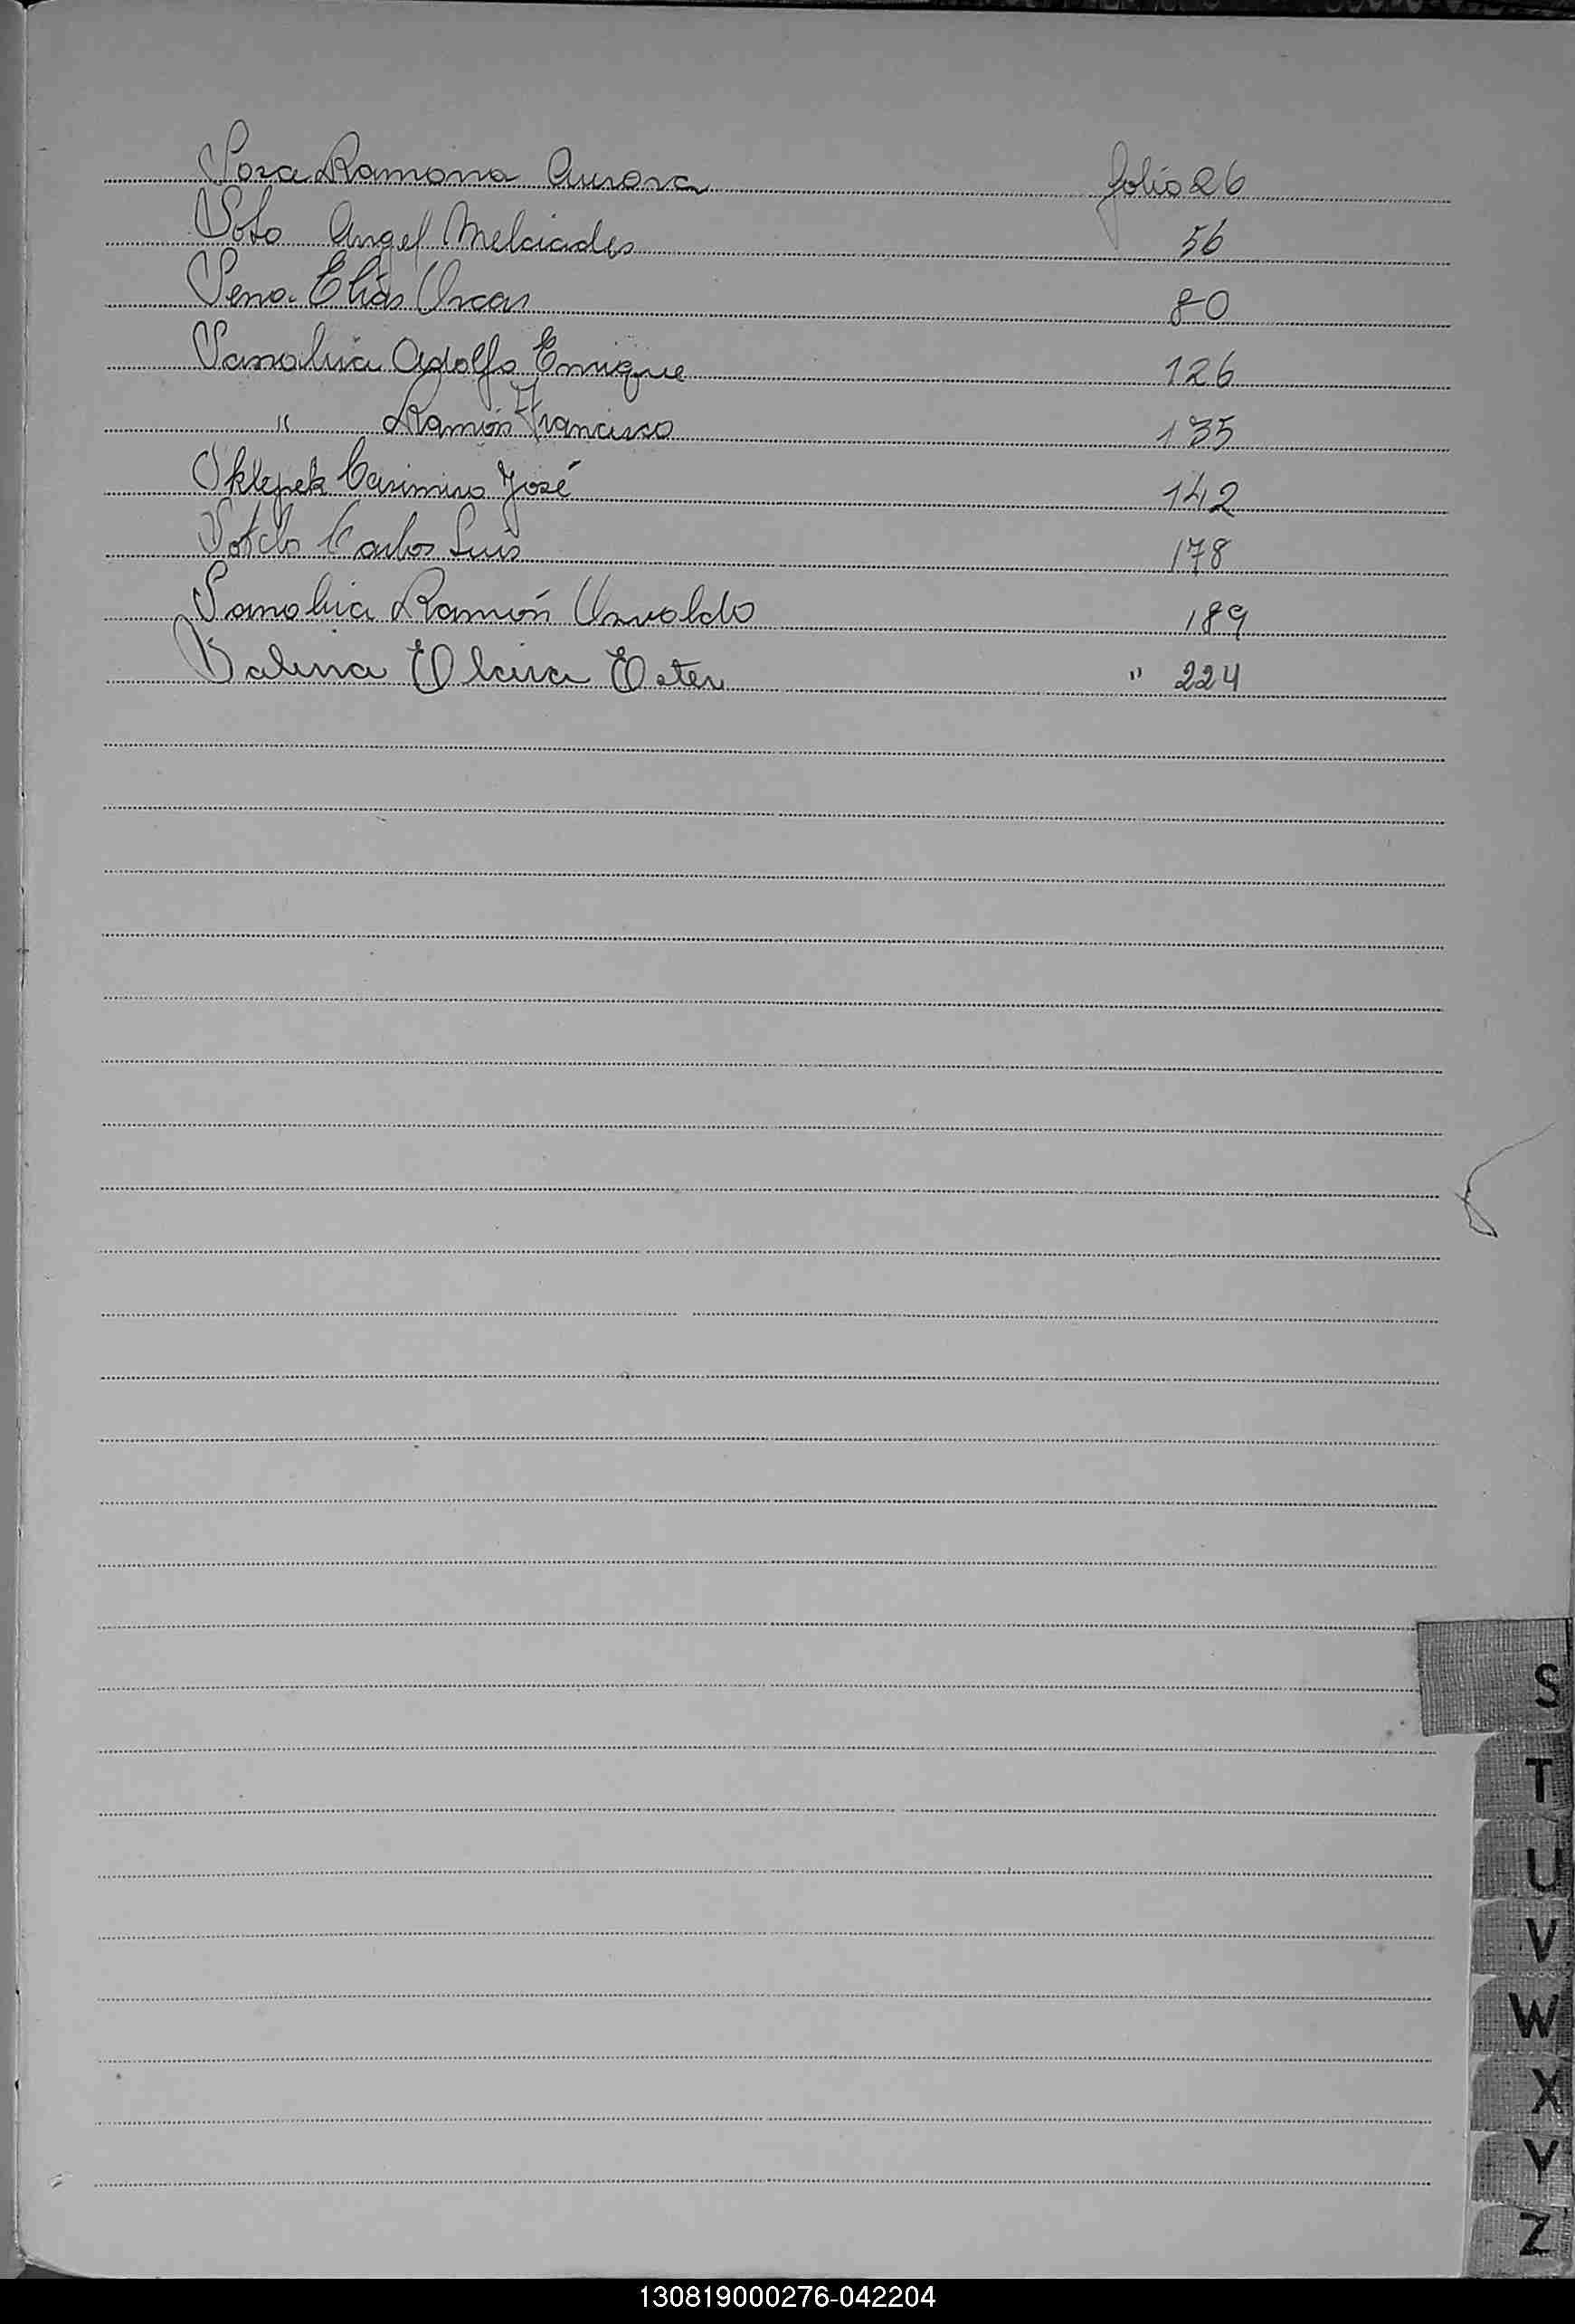 Sosa Ramona Aurora folio 26
Soto Angel Melciades 56
Sena Elias Oscar 80
Sanabria Adolfo Enrique 126
" Ramón Francisco 135
Sklepek Casimiro José 142
Carlos Luis 178
Sanabria Ramón Osvaldo 189
Elvira Ester " 224
S
T
U
V
W
X
Y
Z
130819000276-042204